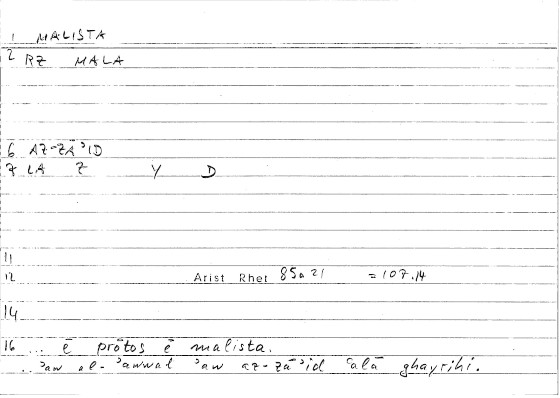 1 MALISTA
2 RZ MALA
6 AZ-ZĀʾID
7 LA Z Y D
11
12 Arist Rhet 85a21 =107.14
14
16 ... ē prōtos ē malista.
...ʾaw al-ʾawwal ʾaw az-zāʾid ʿalā ghayrihi.